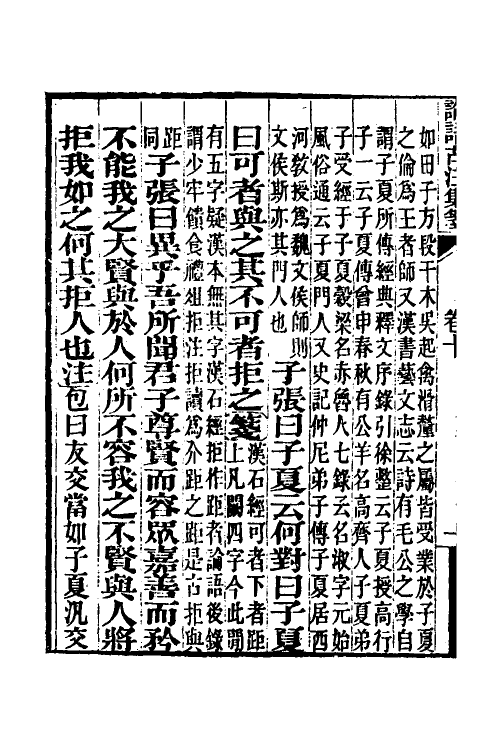 論語古注集箋 卷十
如田子方段干木吳起禽滑釐之屬皆受業於子夏
之倫為王者師又漢書藝文志云詩有毛公之學自
謂子夏所傳經典釋文序錄引徐整云子夏授高行
子一云子夏傳曾申春秋有公羊名高齊人子夏弟
子受經于子夏穀梁名赤魯人七錄云名淑字元始
風俗通云子夏門人又史記仲尼弟子傳子夏居西
河敎授為魏文侯師則
文侯斯亦其門人也
子張曰子夏云何對曰子夏
曰可者與之其不可者拒之箋
漢石經可者下者距
上凡闕四字今此閒
有五字疑漢本無其字漢石經拒作距者論語後錄
謂少牢饋食禮俎拒注拒讀為介距之距是古拒與
距
同
子張曰異乎吾所聞君子尊賢而容眾嘉善而矜
不能我之大賢與於人何所不容我之不賢與人將
拒我如之何其拒人也注包曰友交當如子夏汎交